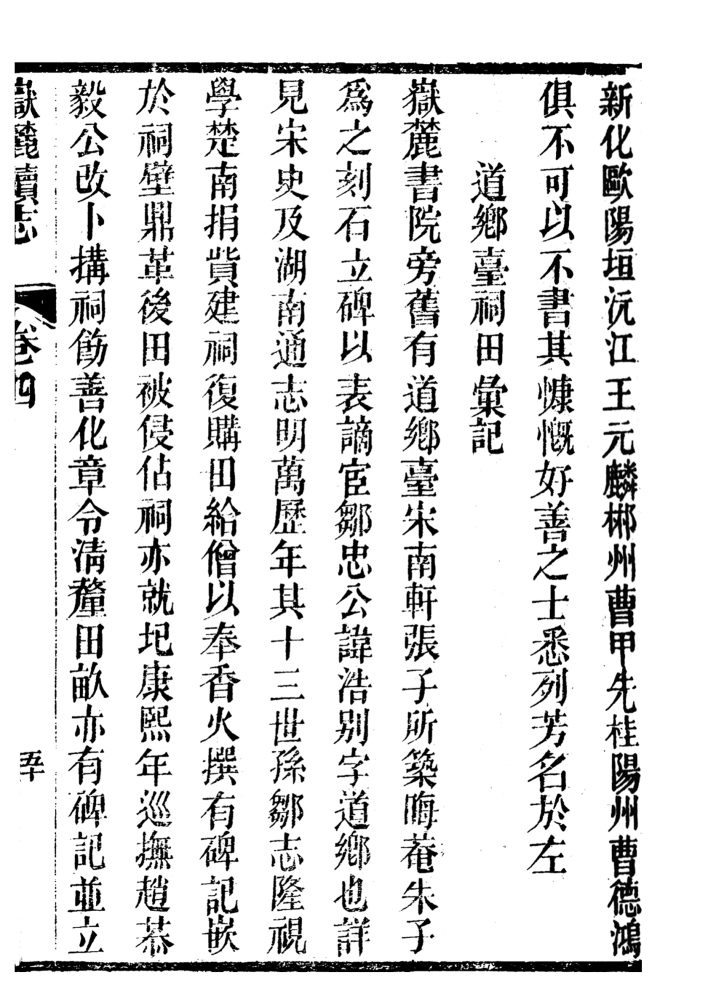 新化歐陽垣沅江王元麟郴州曹甲先桂陽州曹德鴻
俱不可以不書其慷慨好善之士悉列芳名於左
道鄉臺祠田彙記
嶽麓書院旁舊有道鄉臺宋南軒張子所築晦菴朱子
爲之刻石立碑以表謫宦鄒忠公諱浩别字道鄉也詳
見宋史及湖南通志明萬歷年其十三世孫鄒志隆視
學楚南捐貲建祠復購田給僧以奉香火撰有碑記嵌
於祠壁鼎革後田被侵佔祠亦就圯康熙年巡撫趙恭
毅公改卜搆祠飭善化章令清釐田畝亦有碑記並立
嶽麓續志
卷四
五十